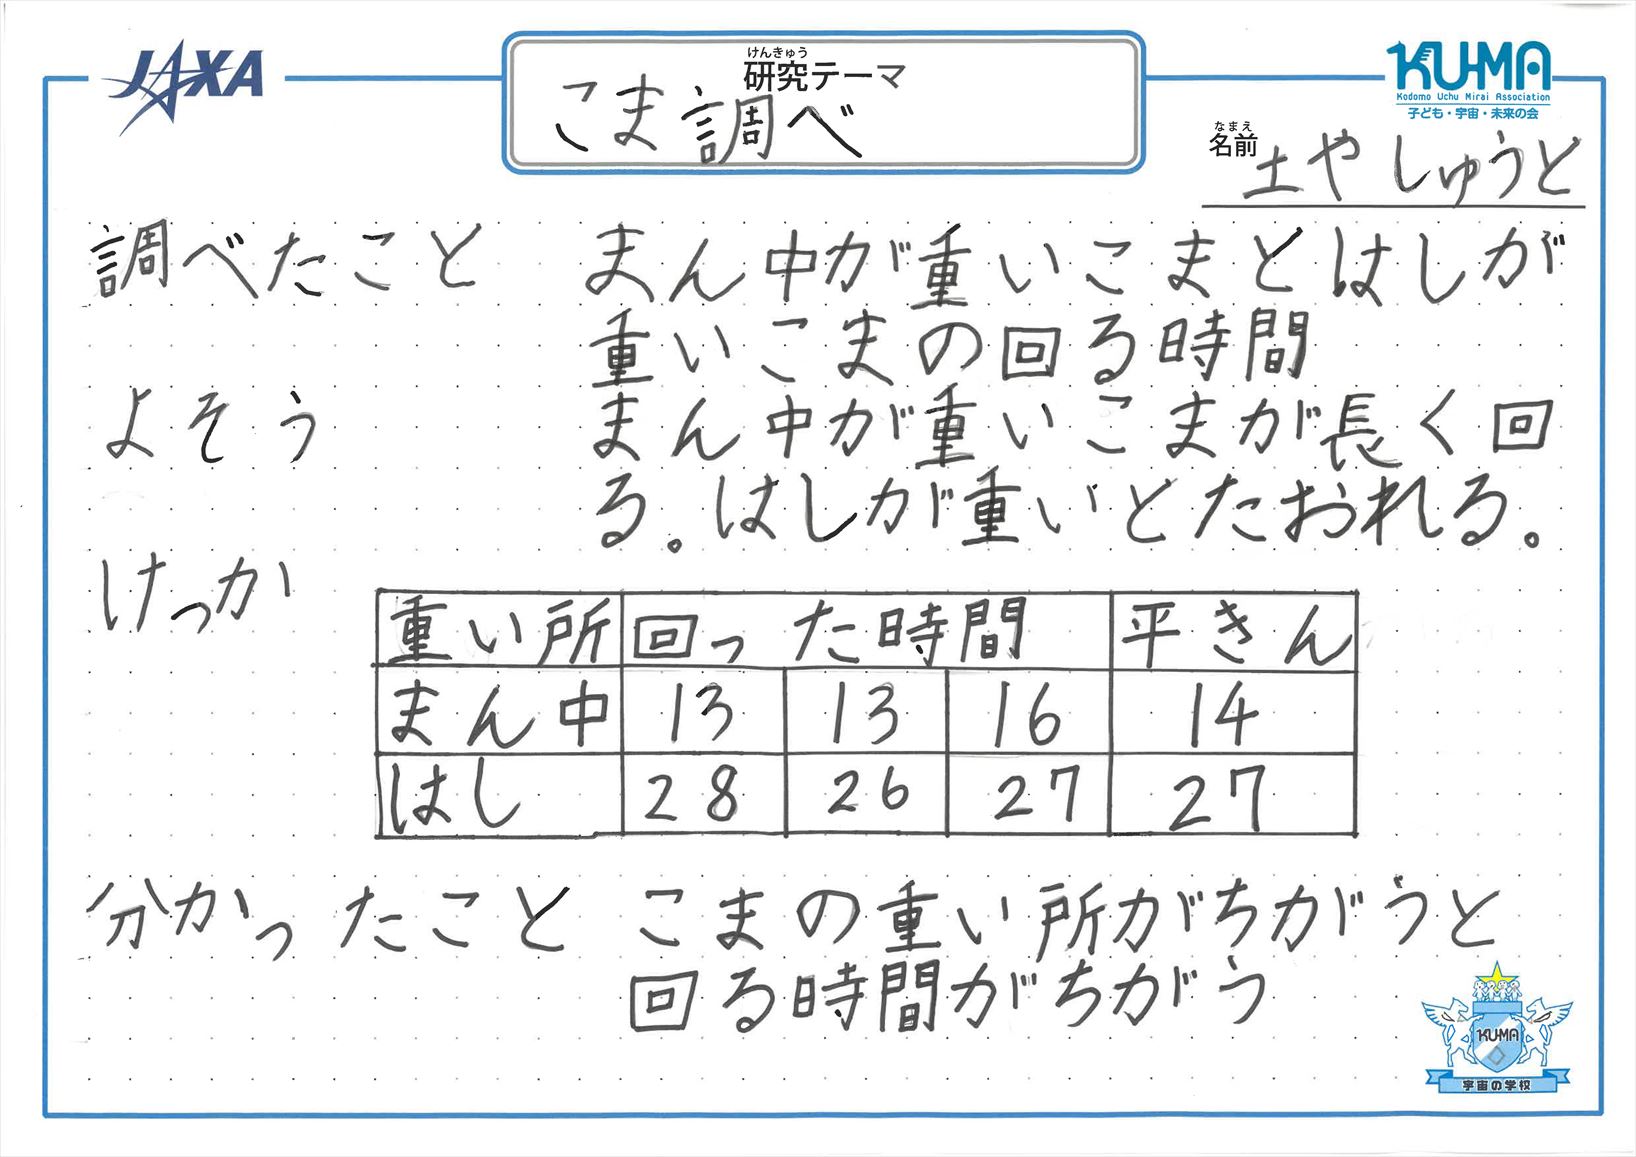 JAXA
けんきゅう
研究テーマ
こま調べ
KU-MA
Kodomo Uchu Mirai Association
子ども・宇宙・未来の会
なまえ
名前
土や しゅうと
調べたこと まん中が重いこまとはしが
重いこまの回る時間
よそう まん中が重いこまが長く回
る。はしが重いとたおれる。
けっか
重い所 回った時間 平きん
まん中 13 13 16 14
はし 28 26 27 27
分かったこと こまの重い所がちがうと
回る時間がちがう
KUMA
宇宙の学校